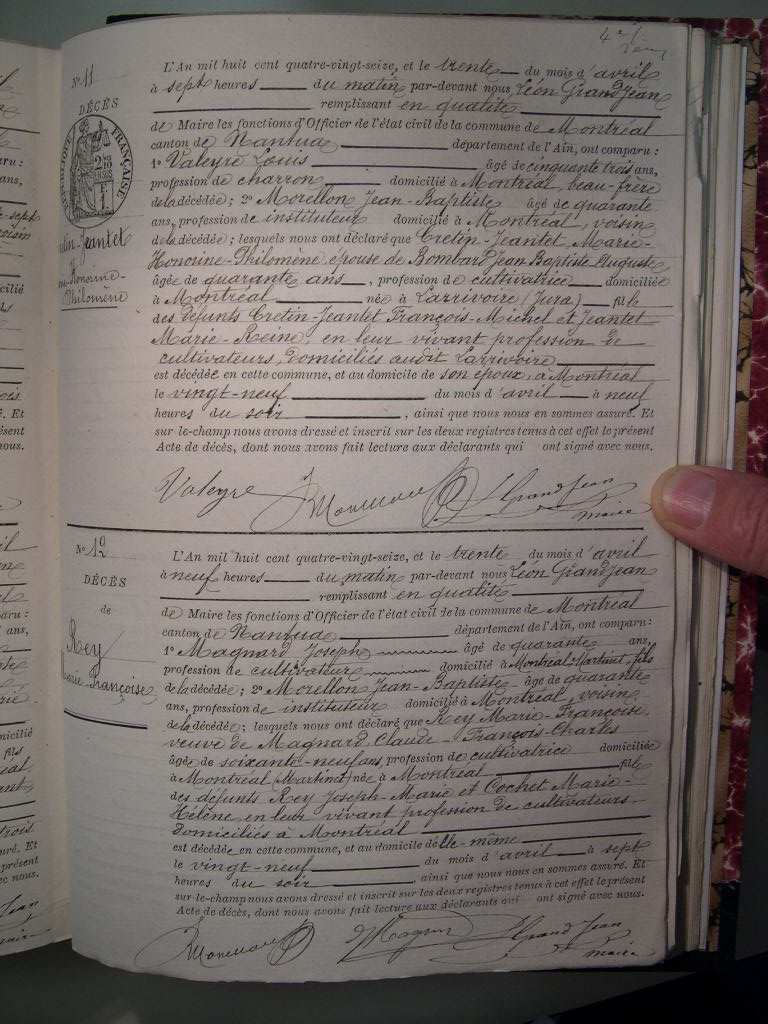 Nº 11
DÉCÈS
RÉPUBLIQUE FRANÇAISE
L'An mil huit cent quatre-vingt-seize, et le trente du mois d'avril
à sept heures du matin par-devant nous Léon Grandjean
remplissant en qualité
de Maire les fonctions d'Officier de l'état civil de la commune de Montréal
canton de Nantua département de l'Ain, ont comparu :
1º Valeyre Louis âgé de cinquante trois ans,
profession de charron domicilié à Montréal, beau-frère
de la décédée ; 2º Morellon Jean-Baptiste âgé de quarante
ans, profession de instituteur domicilié à Montréal, voisin
de la décédée ; lesquels nous ont déclaré que Cretin-Jeantet Marie-
Honorine-Philomène, épouse de Bombard Jean Baptiste Auguste
âgée de quarante ans, profession de cultivatrice domiciliée
à Montréal née à Larrivoire (Jura) fille
des défunts Cretin-Jeantet François-Michel et Jeantet
Marie-Reine, en leur vivant profession de
cultivateurs, domiciliés audit Larrivoire
est décédée en cette commune, et au domicile de son époux, à Montréal
le vingt-neuf du mois d'avril à neuf
heures du soir, ainsi que nous nous en sommes assuré. Et
sur-le-champ nous avons dressé et inscrit sur les deux registres tenus à cet effet le présent
Acte de décès, dont nous avons fait lecture aux déclarants qui ont signé avec nous.
Valeyre Morellon L. Grand Jean
maire
Nº 12
DÉCÈS
de
Rey
Marie Françoise
L'An mil huit cent quatre-vingt-seize, et le trente du mois d'avril
à neuf heures du matin par-devant nous Léon Grandjean
remplissant en qualité
de Maire les fonctions d'Officier de l'état civil de la commune de Montréal
canton de Nantua département de l'Ain, ont comparu :
1º Magnard Joseph âgé de quarante ans,
profession de cultivateur domicilié à Montréal-Martinet, fils
de la décédée ; 2º Morellon Jean-Baptiste âgé de quarante
ans, profession de instituteur domicilié à Montréal, voisin
de la décédée ; lesquels nous ont déclaré que Rey Marie-Françoise
veuve de Magnard Claude-François-Charles
âgée de soixante-neuf ans, profession de cultivatrice domiciliée
à Montréal (Martinet) née à Montréal fille
des défunts Rey Joseph-Marie et Cochet Marie-
Hélène en leur vivant profession de cultivateurs
domiciliés à Montréal
est décédée en cette commune, et au domicile d'elle-même
le vingt-neuf du mois d'avril à sept
heures du soir, ainsi que nous nous en sommes assuré. Et
sur-le-champ nous avons dressé et inscrit sur les deux registres tenus à cet effet le présent
Acte de décès, dont nous avons fait lecture aux déclarants qui ont signé avec nous.
Morellon Magnard L. Grand Jean
maire